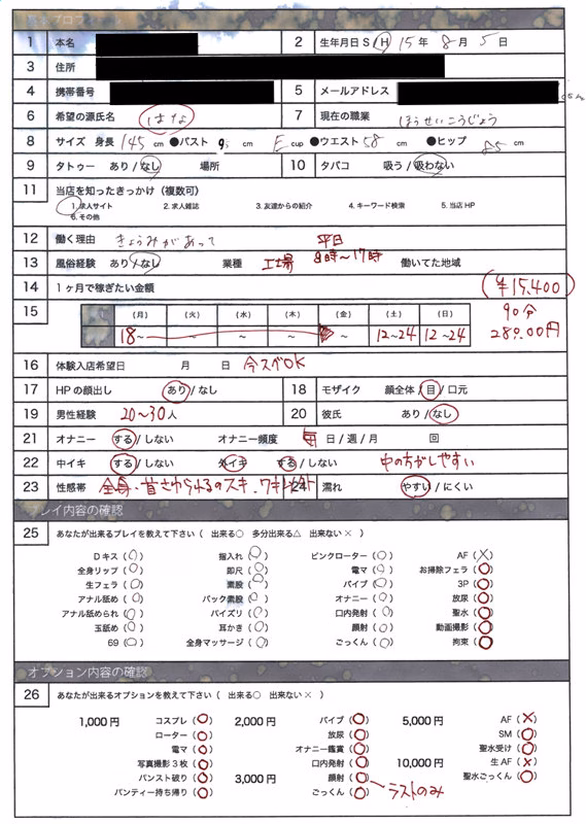 基本プロフィール
1 本名 2 生年月日 S / H 15年 8月 5日
3 住所
4 携帯番号 5 メールアドレス
6 希望の源氏名 はな 7 現在の職業 ほうせいこうじょう
8 サイズ 身長 145 cm ●バスト cm E cup ●ウエスト 58 cm ●ヒップ 85 cm
9 タトゥー あり / なし 場所 10 タバコ 吸う / 吸わない
11 当店を知ったきっかけ（複数可）
1.求人サイト 2.求人雑誌 3.友達からの紹介 4.キーワード検索 5.当店HP
6.その他
12 働く理由 きょうみがあって 平日
13 風俗経験 あり / なし 業種 工場 8時〜17時 働いてた地域
14 1ヶ月で稼ぎたい金額 (￥15,400)
15 (月) (火) (水) (木) (金) (土) (日) 90分
18〜 〜 〜 〜 〜 12〜24 12〜24 28000円
16 体験入店希望日 月 日 今スグOK
17 HPの顔出し あり / なし 18 モザイク 顔全体 / 目 / 口元
19 男性経験 20〜30人 20 彼氏 あり / なし
21 オナニー する / しない オナニー頻度 毎 日 / 週 / 月 回
22 中イキ する / しない 外イキ する / しない 中の方がしやすい
23 性感帯 全身・首さわられるのスキ、ワキ 24 濡れ やすい / にくい
プレイ内容の確認
25 あなたが出来るプレイを教えて下さい（ 出来る○ 多分出来る△ 出来ない× ）
Dキス (○) 指入れ (○) ピンクローター (○) AF (×)
全身リップ (○) 即尺 (○) 電マ (○) お掃除フェラ (○)
生フェラ (○) 素股 (○) バイブ (○) 3P (○)
アナル舐め (○) バック素股 (○) オナニー (○) 放尿 (○)
アナル舐められ (○) パイズリ (○) 口内発射 (○) 聖水 (○)
玉舐め (○) 耳かき (○) 顔射 (○) 動画撮影 (○)
69 (○) 全身マッサージ (○) ごっくん (○) 拘束 (○)
オプション内容の確認
26 あなたが出来るオプションを教えて下さい（ 出来る○ 出来ない× ）
1,000円 コスプレ (○) 2,000円 バイブ (○) 5,000円 AF (×)
ローター (○) 放尿 (○) SM (○)
電マ (○) オナニー鑑賞 (○) 聖水受け (○)
写真撮影3枚 (○) 口内発射 (○) 10,000円 生AF (×)
パンスト破り (○) 3,000円 顔射 (○) 聖水ごっくん (○)
パンティー持ち帰り (○) ごっくん (○) ラストのみ